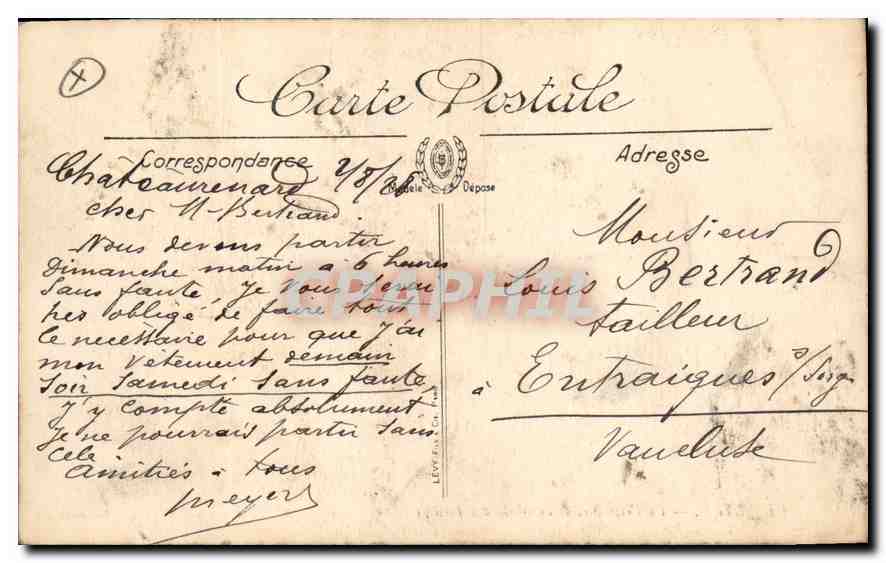 Carte Postale
Correspondance
Adresse
Modèle Déposé
Châteaurenard 7/8/08
cher M. Bertrand.
Nous devons partir
Dimanche matin à 6 heures
sans faute, je vous serai
très obligé de faire tout
le necessaire pour que j'ai
mon vêtement demain
soir Samedi sans faute
J'y compte absolument
je ne pourrais partir sans
cela
Amitiés à tous
Meyer
LÉVY Fils & Cie, Paris
Monsieur
Louis Bertrand
tailleur
à Entraigues s/ Sorgue
Vaucluse
CPAPHIL